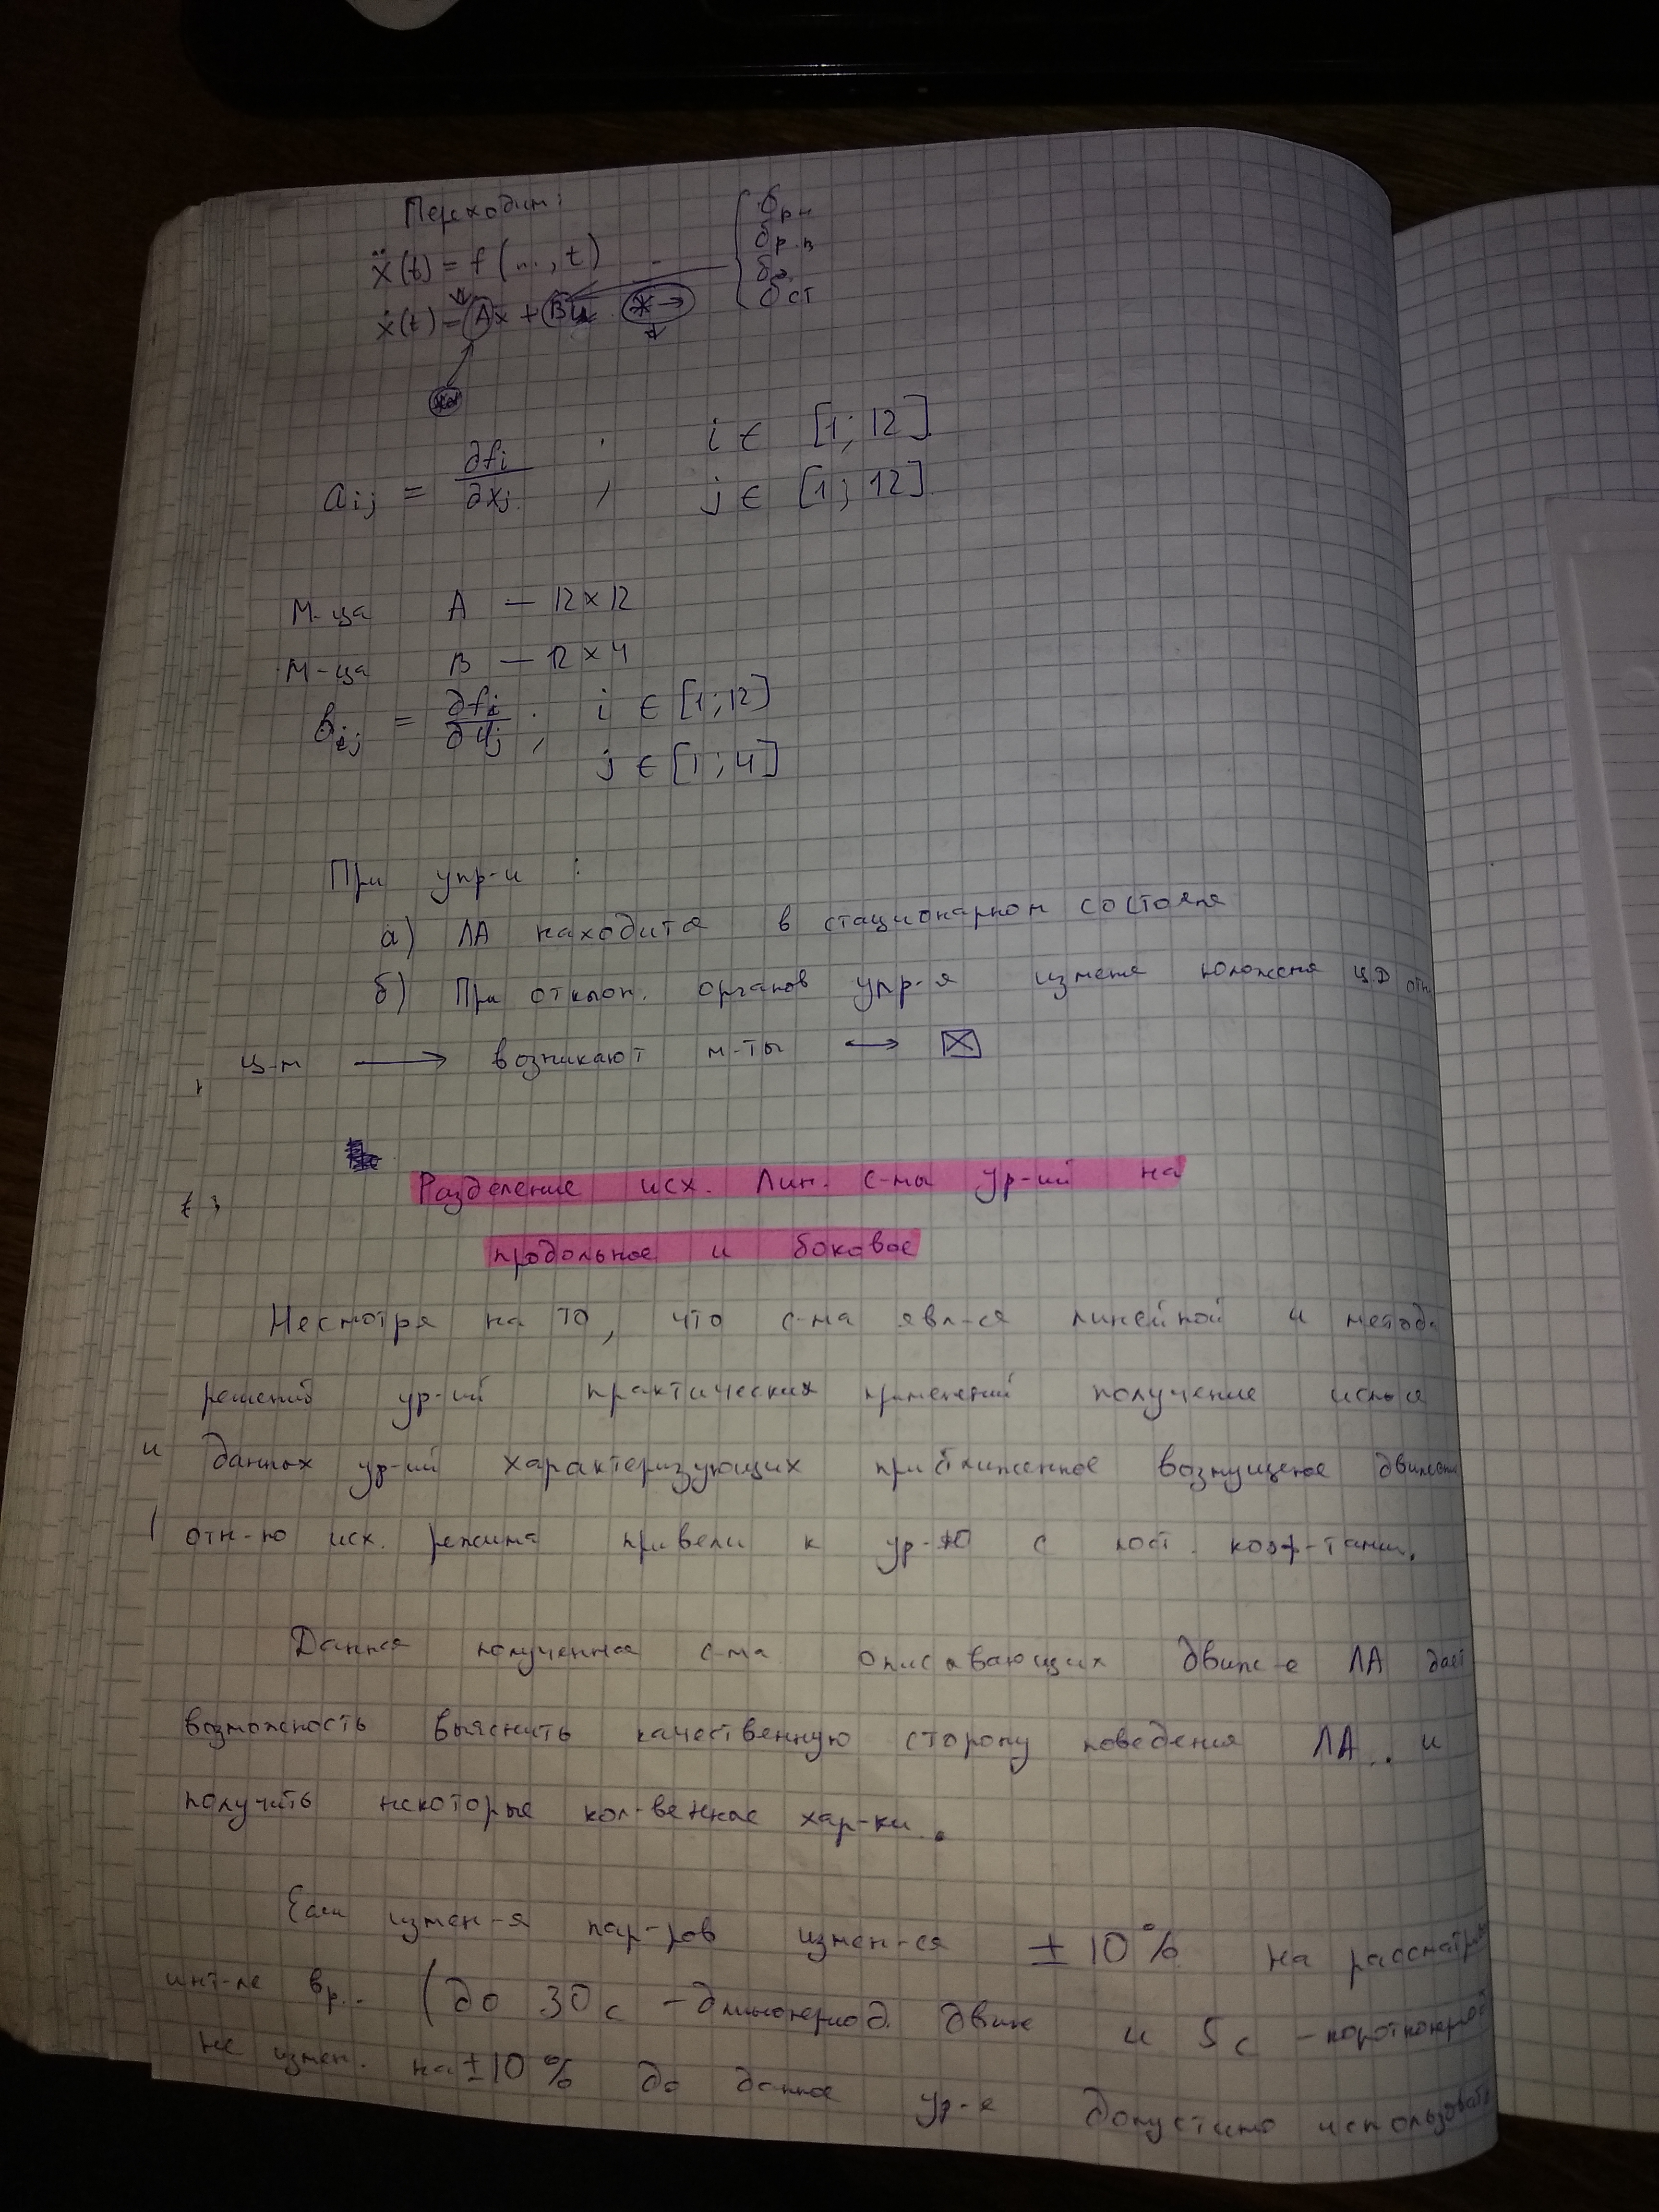 Переходим:
ẍ(t) = f(..., t)
ẋ(t) = Ax + Bu
δрн
δр.в
δэ
δст
aij = ∂fi/∂xj ; i ∈ [1; 12]
j ∈ [1; 12]
М-ца A — 12×12
М-ца B — 12×4
bij = ∂fi/∂uj ; i ∈ [1; 12]
j ∈ [1; 4]
При упр-и :
а) ЛА находится в стационарном состояня
б) При отклон. органов упр-я измене положеня ЦД отн
ц-м ⟶ возникают м-ты ⟷ ☒
Разделение исх. Лин. с-мы ур-ий на
продольное и боковое
Несмотря на то, что с-ма явл-ся линейной и метод
решений ур-ий практических применений получение
и данных ур-ий характеризующих приближенное возмущеное движение
отн-ю исх. режима привели к ур-ю с пост. коэф-тами.
Данная полученная с-ма описывающих движ-е ЛА дает
возможность выяснить качественную сторону поведения ЛА и
получить некоторые кол-венные хар-ки.
Если измен-я пар-ров измен-ся ±10% на рассматрив
инт-ле вр. (до 30 с - длинопериод. движ и 5 с - короткопериод
не измен. на ±10% до данное ур-е допустимо использовать